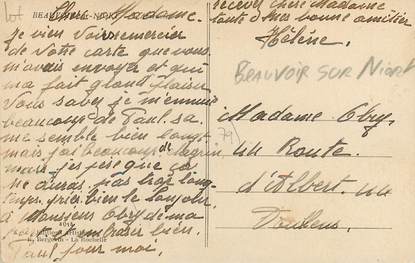 lot
BEAUVOIR-
Chère Madame.
je viens vous remercier
de votre carte que vous
m'avais envoyer et qui
ma fait grand plaisir
Vous savez je m'ennuis
beaucoup de Paul. sa
me semble bien longt
mais j'ai beaucoup de
mais j'espère que ça
ne durras pas trop long-
temps. bien le bonjour
à Monsieur Obry de ma
part et embrasser bien
Paul pour moi.
Bergevin - La Rochelle
recevez chère Madame
toute mes bonne amitier
Hélène.
BEAUVOIR SUR Niort
79
Madame Obry.
Route.
d'Albert.
Doulens.